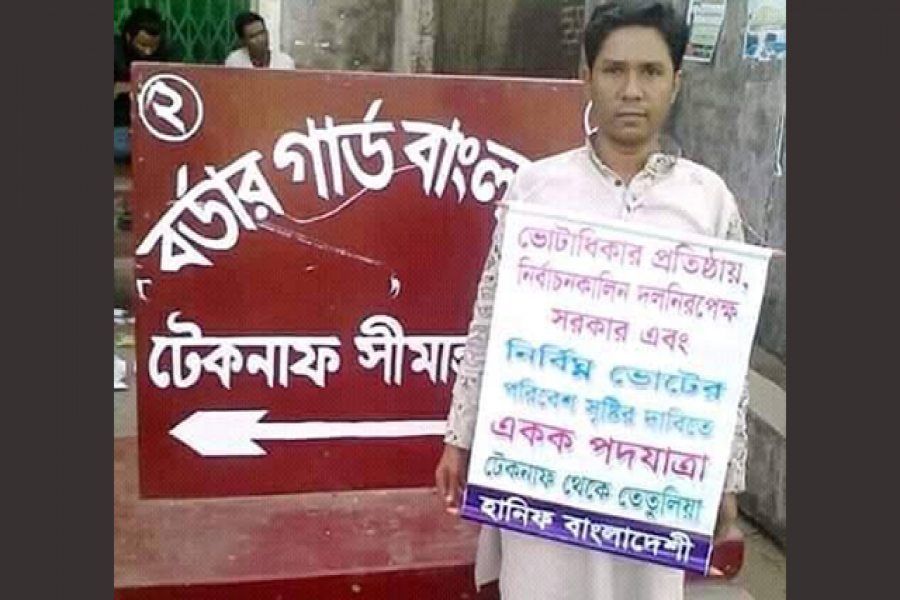 ২
বর্ডার গার্ড
টেকনাফ
ভোটাধিকার প্রতিষ্ঠায়,
নির্বাচনকালিন দলনিরপেক্ষ
সরকার এবং
নির্বিঘ্ন ভোটের
পরিবেশ সৃষ্টির দাবিতে
একক পদযাত্রা
টেকনাফ থেকে তেতুলিয়া
হানিফ বাংলাদেশী